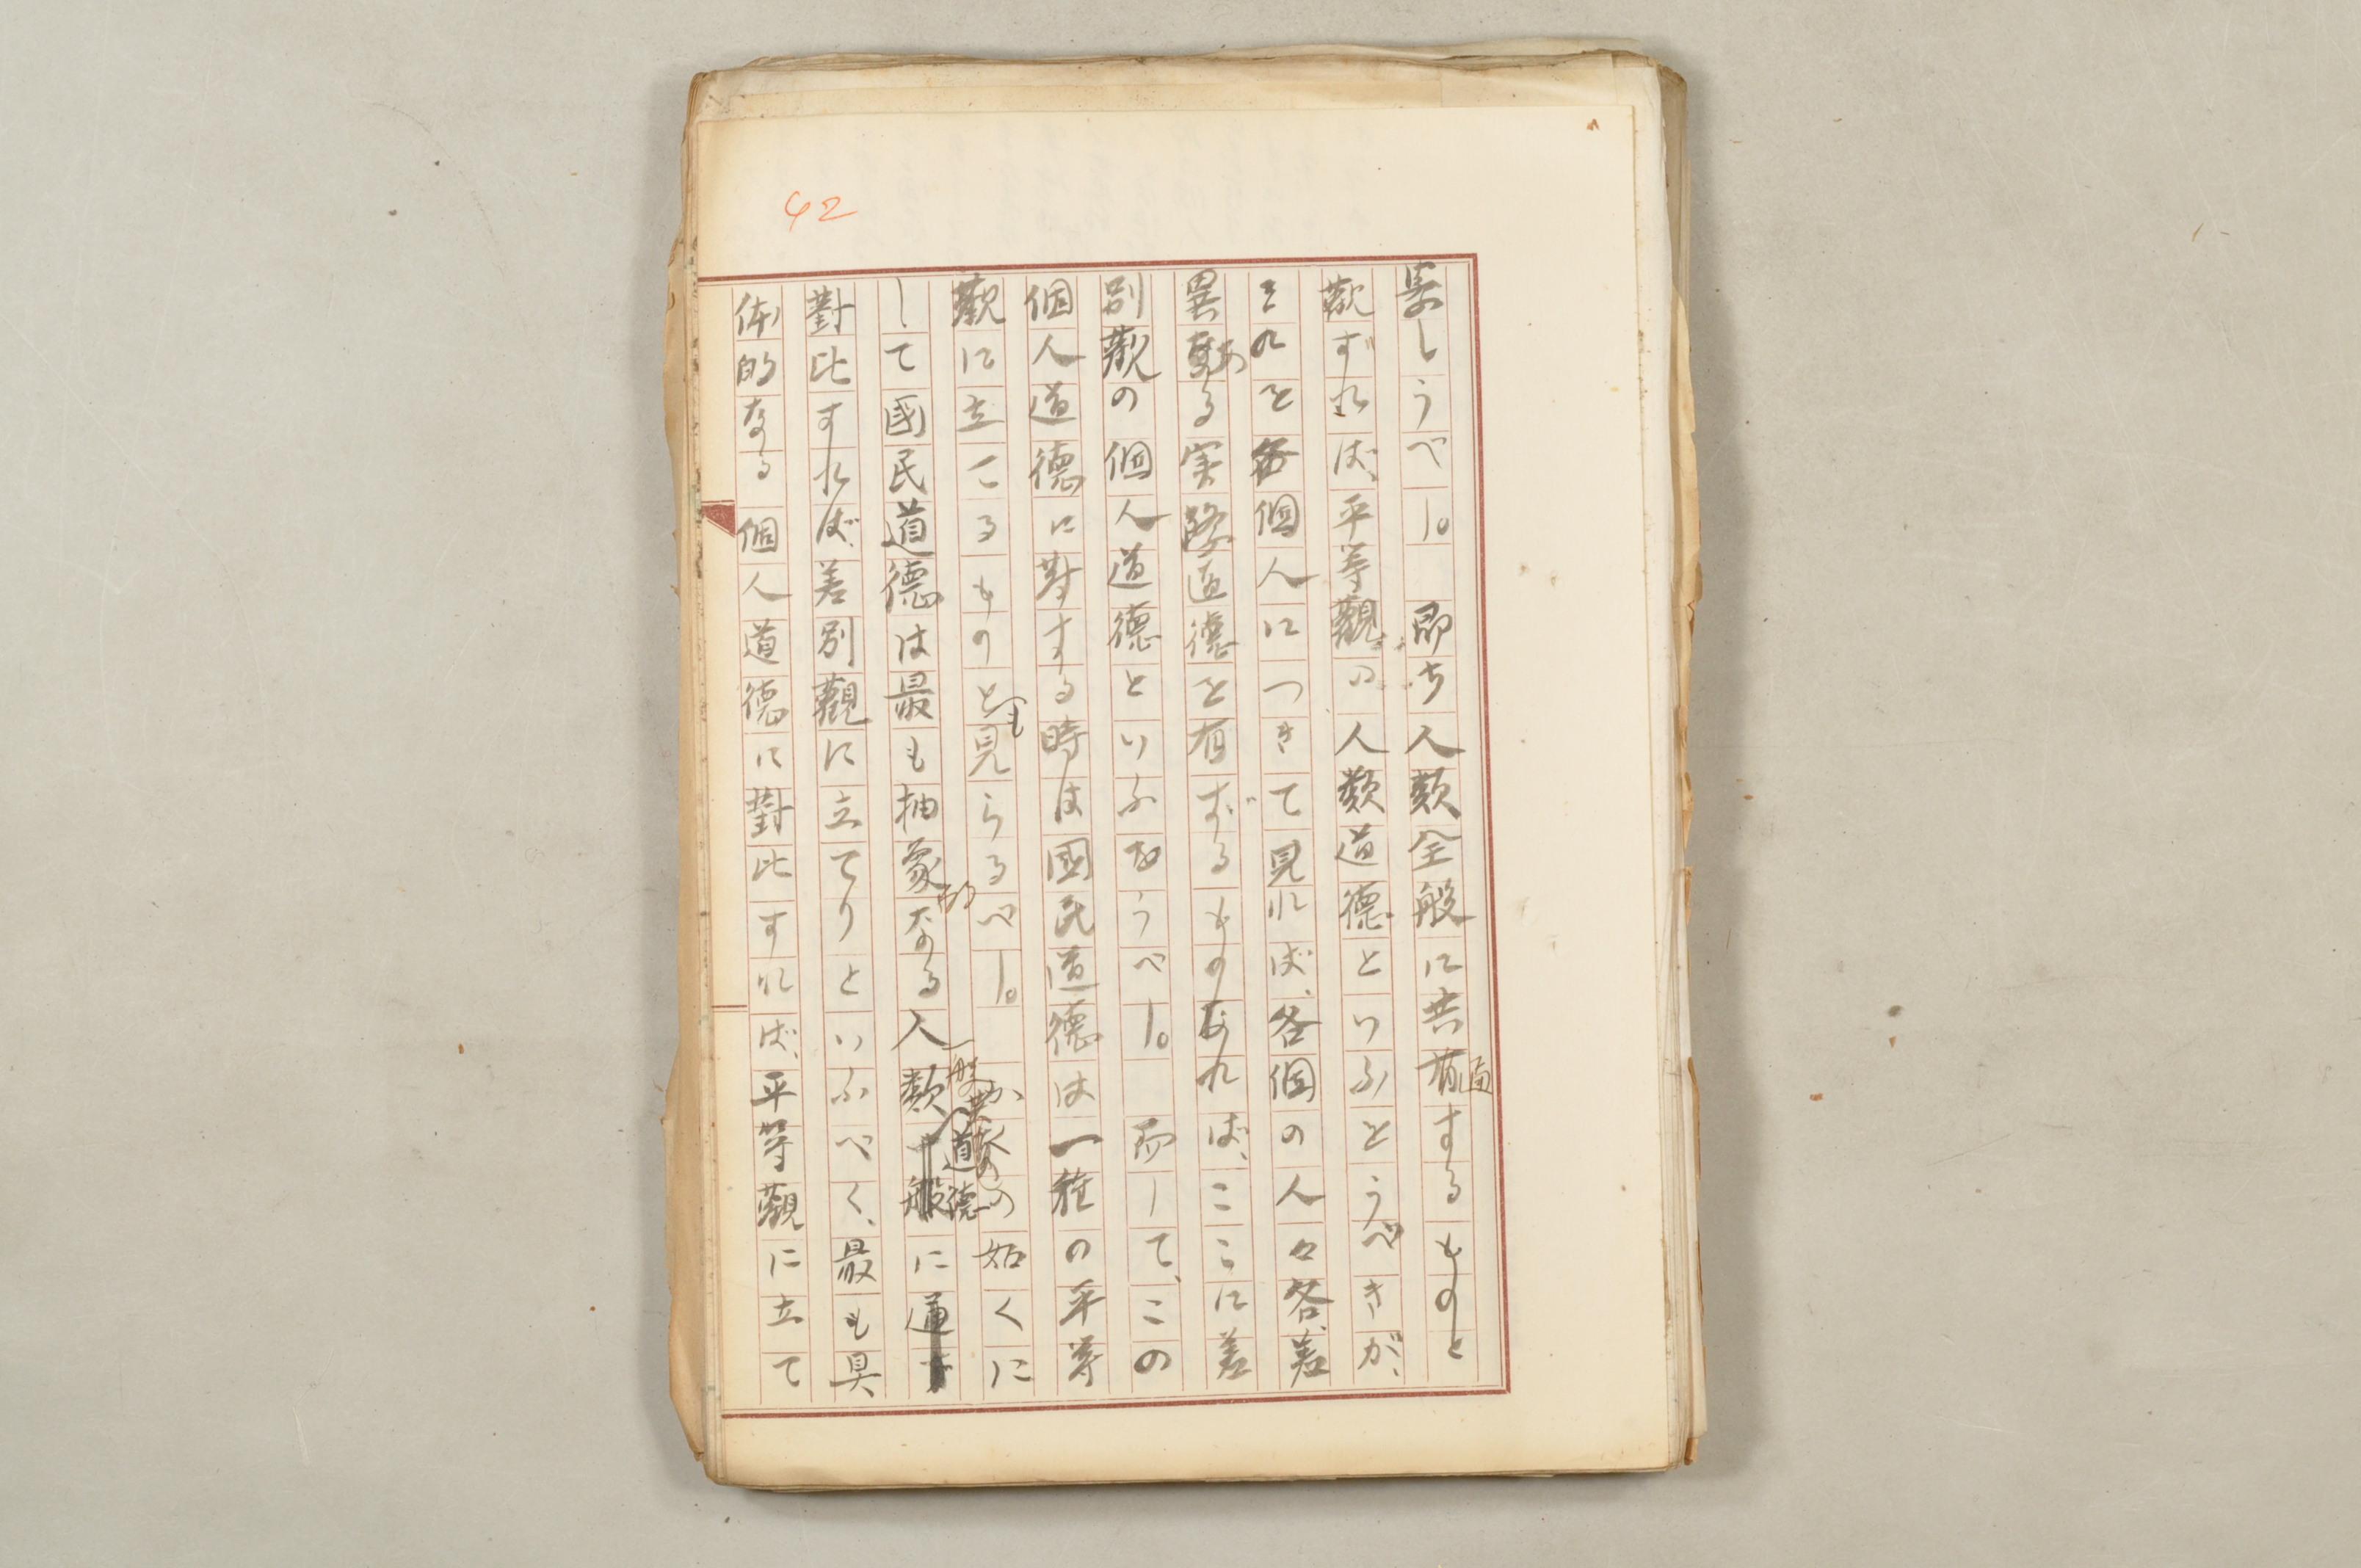 42
しうべし。即ち人類全般に共有するものと
通
觀ずれば、平等觀の人類道德といふをうべきが、
これを各個人につきて見れば、各個の人々各、差
異ある実際道德を有ずるものなれば、ここに差
別觀の個人道德といふをうべし。而して、この
個人道德に對する時は國民道德は一種の平等
觀に立てるものとも見らるべし。かくの如くに
して國民道德は最も抽象的なる人類
一般
道德に
對比すれば、差別觀に立てりといふべく、最も具
体的なる個人道德に對比すれば、平等觀に立て